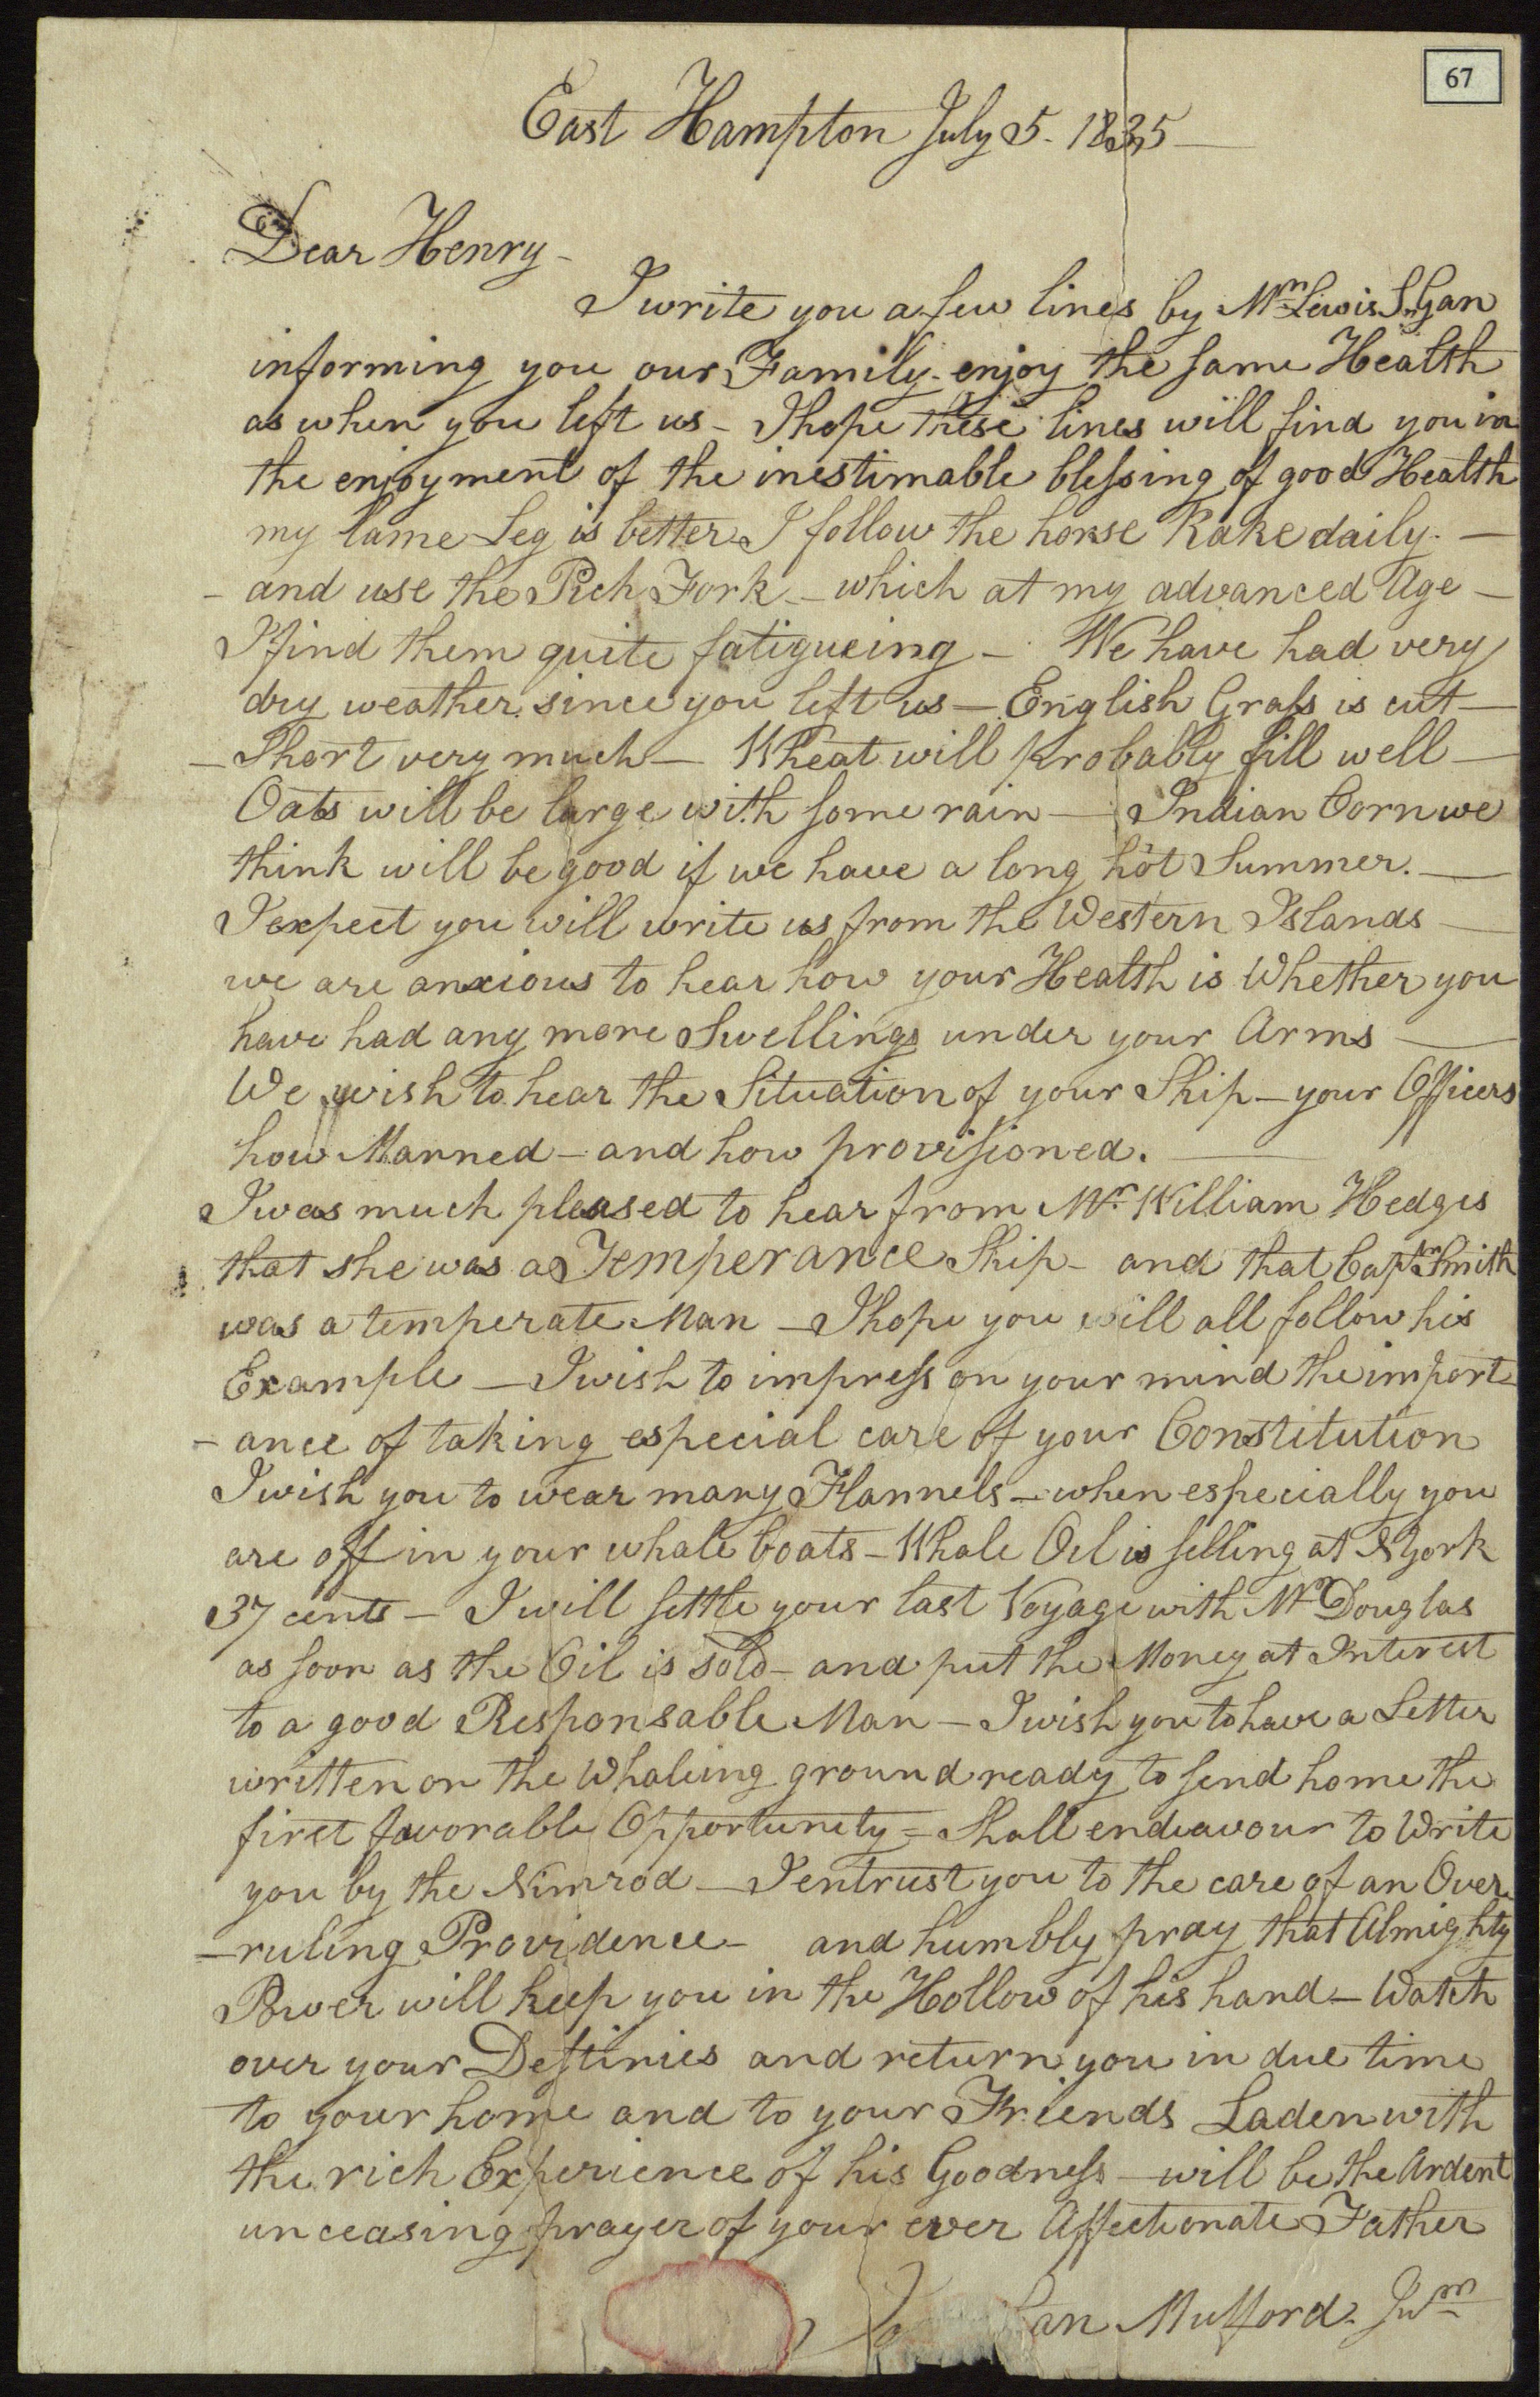 67
East Hampton July 5. 1835
Dear Henry -
I write you a few lines by Mr Lewis S. Gan
informing you our Family enjoy the same Health
as when you left us - I hope these lines will find you in
the enjoyment of the inestimable blessing of good Health
my lame Leg is better I follow the horse Rake daily. —
- and use the Pich Fork - which at my advanced Age —
I find them quite fatigueing - We have had very
dry weather since you left us — English Grass is cut —
- Short very much — Wheat will probably fill well —
Oats will be large with some rain — Indian Corn we
think will be good if we have a long hot Summer. —
I expect you will write us from the Western Islands —
we are anxious to hear how your Health is Whether you
have had any more Swellings under your Arms —
We wish to hear the Situation of your Ship - your Officers
how Manned - and how provisioned. —
I was much pleased to hear from Mr. William Hedges
that she was a Temperance Ship - and that Captn Smith
was a temperate Man - I hope you will all follow his
Example — I wish to impress on your mind the import-
- ance of taking especial care of your Constitution
I wish you to wear many Flannels - when especially you
are off in your whale boats - Whale Oil is selling at NYork
37 cents - I will settle your last Voyage with Mr Douglas
as soon as the Oil is sold - and put the Money at Interest
to a good Responsable Man - I wish you to have a Letter
written on the Whaleing ground ready to send home the
first favorable Opportunety = Shall endeavour to Write
you by the Nimrod — I entrust you to the care of an Over-
- ruling Providence - and humbly pray that Almighty
Power will keep you in the Hollow of his hand - Watch
over your Destinies and return you in due time
to your home and to your Friends Laden with
the rich Experience of his Goodness - will be the Ardent
unceasing prayer of your ever Affectionate Father
an Mulford. Junr